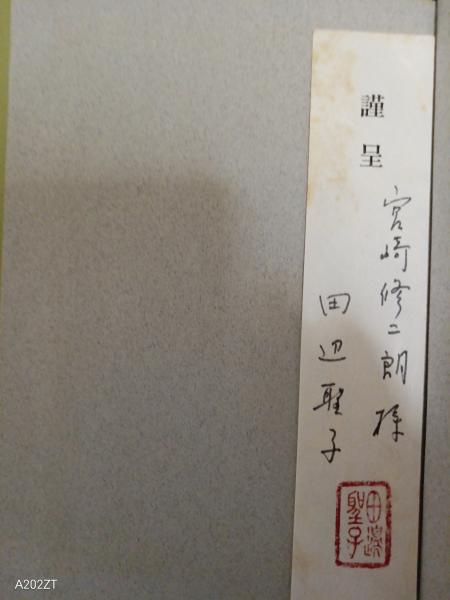 謹呈
宮崎修二朗様
田辺聖子
田邉聖子
A202ZT